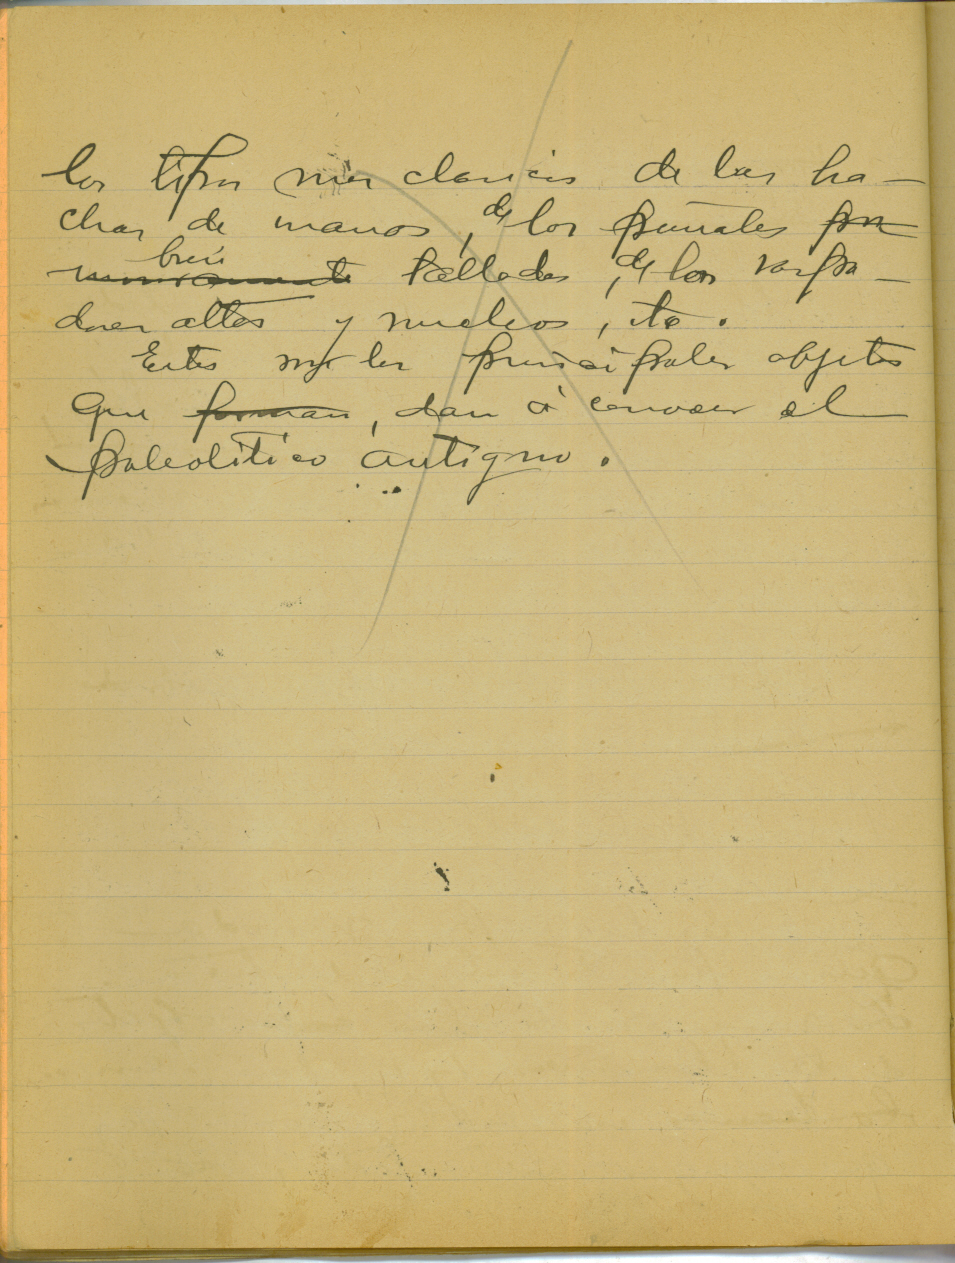 los tipos mas clasicos de las ha-
chas de manos, de los puñales
bien tallados, de los raspa-
dores altos y nucleos, etc.
Estos son los principales objetos
que forman, dan á conocer el
paleolitico antiguo.